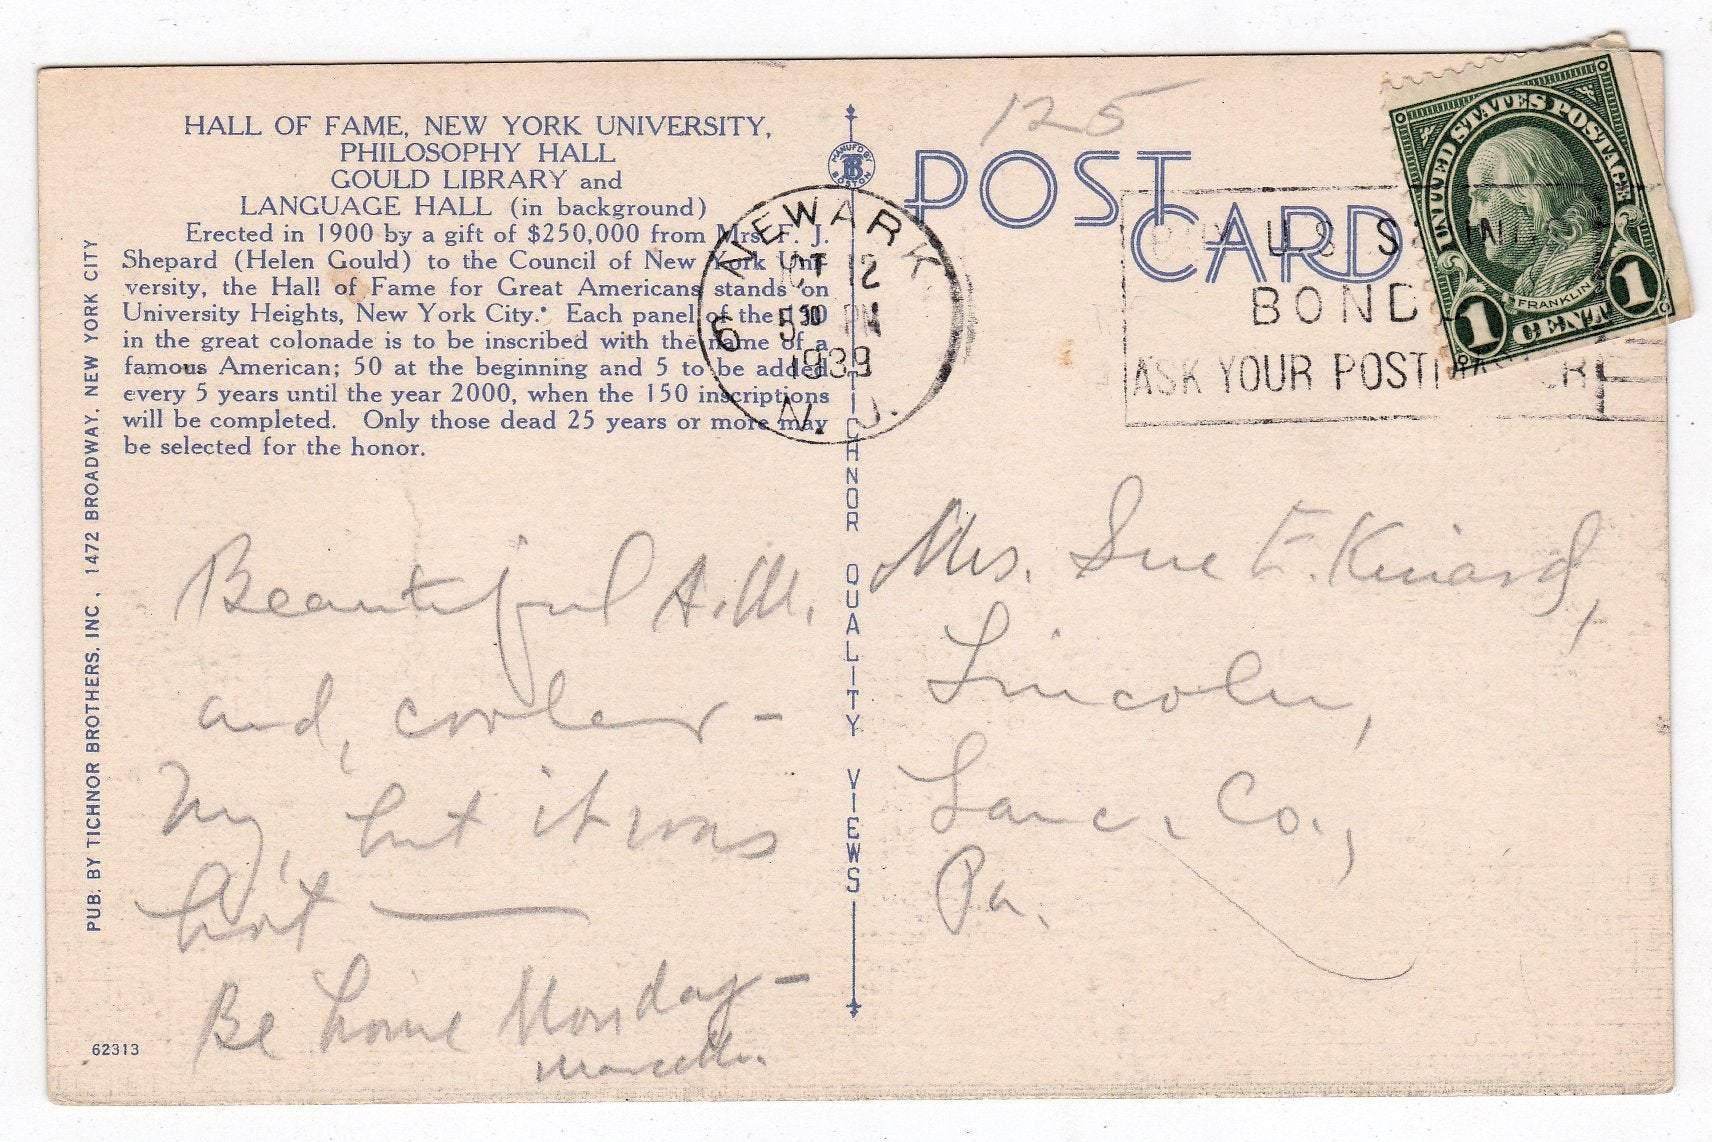 HALL OF FAME, NEW YORK UNIVERSITY,
PHILOSOPHY HALL
GOULD LIBRARY and
LANGUAGE HALL (in background)
Erected in 1900 by a gift of $250,000 from Mrs. F. J.
Shepard (Helen Gould) to the Council of New York Uni-
versity, the Hall of Fame for Great Americans stands on
University Heights, New York City. Each panel of the 150
in the great colonade is to be inscribed with the name of a
famous American; 50 at the beginning and 5 to be added
every 5 years until the year 2000, when the 150 inscriptions
will be completed. Only those dead 25 years or more may
be selected for the honor.
PUB. BY TICHNOR BROTHERS, INC., 1472 BROADWAY, NEW YORK CITY
62313
Beautiful A.M.
and, cooler -
My, but it was
hot
Be home Monday -
MANUF'D BY
TB
BOSTON
TICHNOR QUALITY VIEWS
125
POST
CARD
NEWARK
OCT 12
5 30 PM
1939
N. J.
6
U.S. S
BOND
ASK YOUR POSTMASTER
UNITED STATES POSTAGE
FRANKLIN
1 CENT 1
Mrs. Sue E. Kinard,
Lincoln,
Lanc. Co.,
Pa.